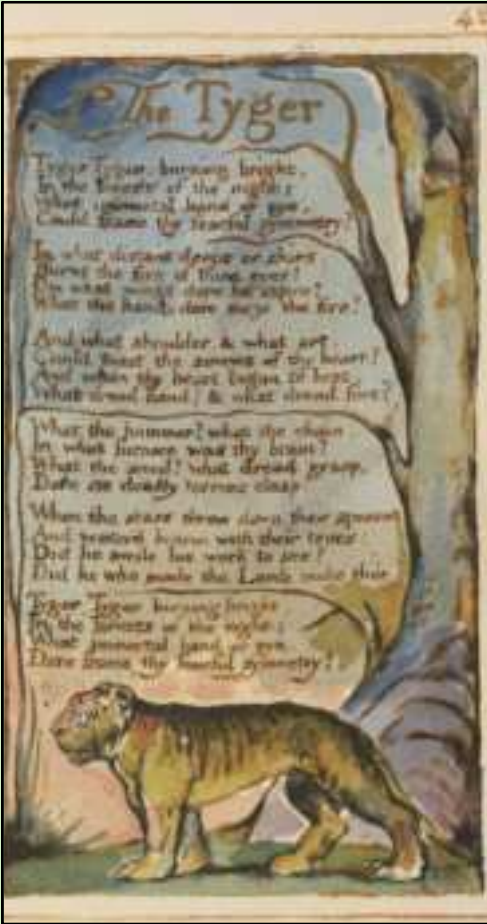 The Tyger
Tyger Tyger, burning bright,
In the forests of the night;
What immortal hand or eye,
Could frame thy fearful symmetry?
In what distant deeps or skies
Burnt the fire of thine eyes?
On what wings dare he aspire?
What the hand, dare sieze the fire?
And what shoulder, & what art,
Could twist the sinews of thy heart?
And when thy heart began to beat,
What dread hand? & what dread feet?
What the hammer? what the chain
In what furnace was thy brain?
What the anvil? what dread grasp,
Dare its deadly terrors clasp
When the stars threw down their spears
And water'd heaven with their tears
Did he smile his work to see?
Did he who made the Lamb make thee
Tyger Tyger burning bright
In the forests of the night;
What immortal hand or eye
Dare frame thy fearful symmetry?